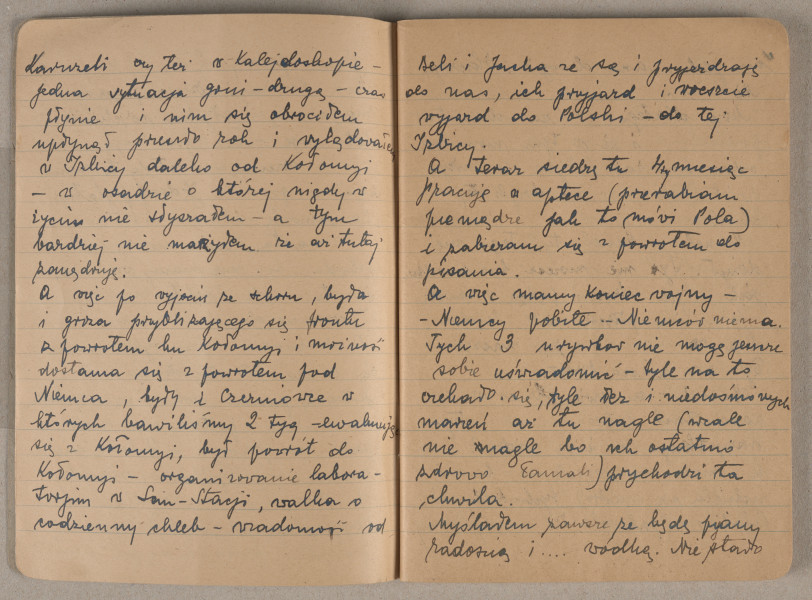 Karuzeli czy też w Kalejdoskopie –
jedna sytuacja goni – drugą – czas
płynie i nim się obróciłem
upłynął prawie rok i wylądowałem
w Izbicy daleko od Kołomyi
– w osadzie o której nigdy w
życiu nie słyszałem – a tym
bardziej nie marzyłem że aż tutaj
zawędruję.
A więc po wyjściu ze schronu, była
i groza przybliżającego się frontu
z powrotem ku Kołomyi i możność
dostania się z powrotem pod
Niemca, były i Czerniowce w
których bawiliśmy 2 tyg – ewakuując
się z Kołomyi, był powrót do
Kołomyi – organizowanie labora-
torjum w San-Stacji, walka o
codzienny chleb – wiadomość od
Deli i Jacha że są i przyjeżdżają
do nas, ich przyjazd i wreszcie
wyjazd do Polski – do tej
Izbicy.
A teraz siedzę tu 4ty miesiąc
Pracuję w aptece (przerabiam
pieniądze jak to mówi Pola)
i zabieram się z powrotem do
pisania.
A więc mamy koniec wojny –
– Niemcy pobite – Niemców niema.
Tych 3 urywków nie mogę jeszcze
sobie uświadomić – tyle na to
czekało się, tyle łez i niedośnionych
marzeń aż tu nagle (wcale
nie nagle bo ich ostatnio
zdrowo łamali) przychodzi ta
chwila.
Myślałem zawsze że będę pijany
radością i .... wódką. Nie stało